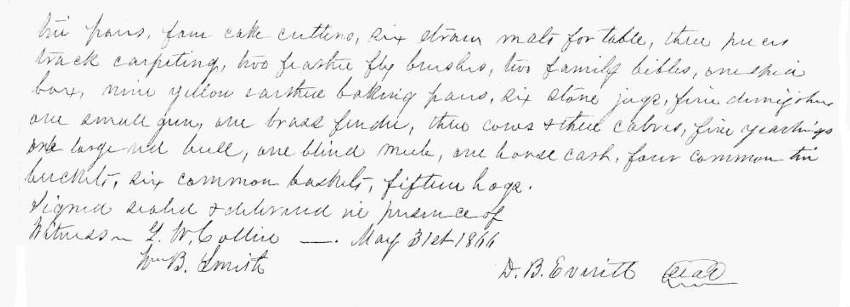 tin pans, four cake cutters, six straw mats for table, three pieces
track carpeting, two feather fly brushes, two family bibles, one spice
box, nine yellow earthen baking pans, six stone jugs, five demijohns
one small gun, one brass fender, three cows & three calves, five yearlings
one large red bull, one blind mule, one horse cart, four common tin
buckets, six common baskets, fifteen hogs.
Signed sealed & delivered in presence of
Witness G. W. Collie — . May 31st 1866
Wm B. Smith D. B. Everitt seal